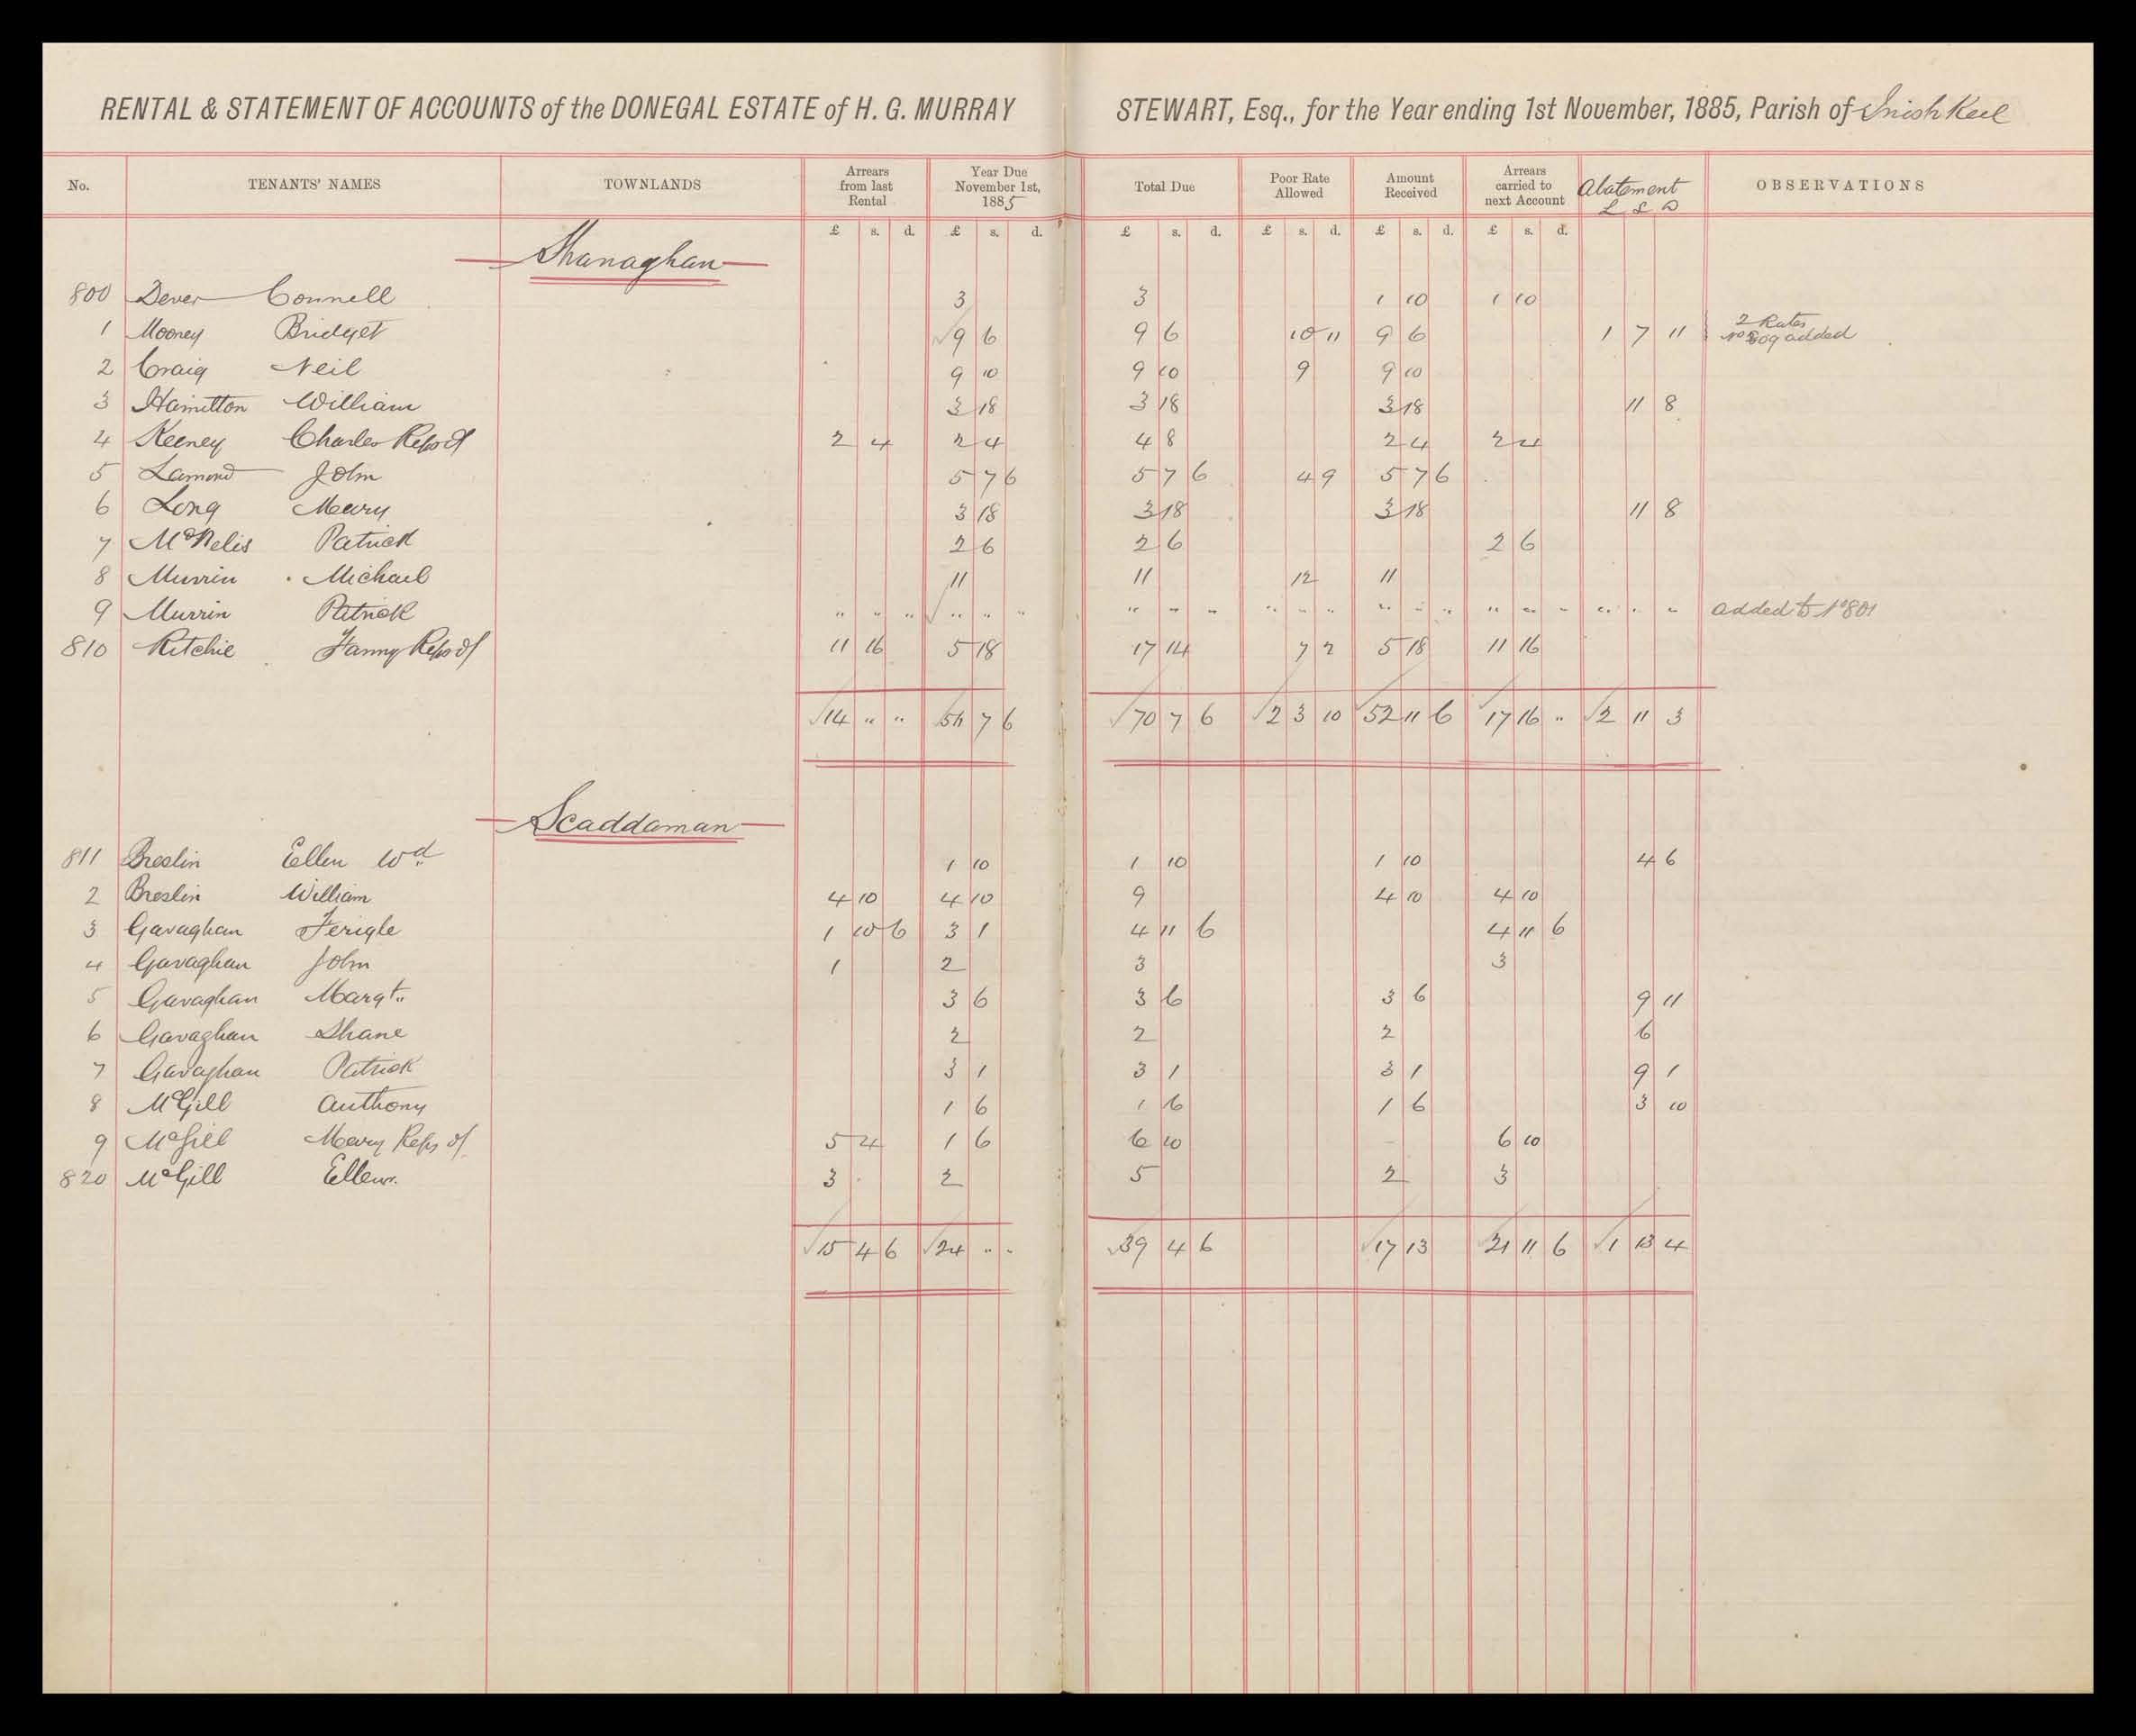 RENTAL & STATEMENT OF ACCOUNTS of the DONEGAL ESTATE of H. G. MURRAY STEWART, Esq., for the Year ending 1st November, 1885, Parish of Inishkeel
No. TENANTS' NAMES TOWNLANDS Arrears from last Rental Year Due November 1st, 1885 Total Due Poor Rate Allowed Amount Received Arrears carried to next Account Abatement £ S D OBSERVATIONS
£ s. d. £ s. d. £ s. d. £ s. d. £ s. d. £ s. d.
Shanaghan
800 Dever Connell 3 3 1 10 1 10
1 Mooney Bridget 9 6 9 6 10 11 9 6 1 7 11 2 Rates No 809 added
2 Craig Neil 9 10 9 10 9 9 10
3 Hamilton William 3 18 3 18 3 18 11 8
4 Keeney Charles Reps of 2 4 2 4 4 8 2 4 2 4
5 Lamond John 5 7 6 5 7 6 4 9 5 7 6
6 Long Mary 3 18 3 18 3 18 11 8
7 McNelis Patrick 2 6 2 6 2 6
8 Murrin Michael 11 11 12 11
9 Murrin Patrick " " " " " " " " " " " " " " " " " " " " " added to No 801
810 Ritchie Fanny Reps of 11 16 5 18 17 14 7 2 5 18 11 16
14 " " 56 7 6 70 7 6 2 3 10 52 11 6 17 16 " 2 11 3
Scaddaman
811 Breslin Ellen Wd 1 10 1 10 1 10 4 6
2 Breslin William 4 10 4 10 9 4 10 4 10
3 Gavaghan Ferigle 1 10 6 3 1 4 11 6 4 11 6
4 Gavaghan John 1 2 3 3
5 Gavaghan Margt. 3 6 3 6 3 6 9 11
6 Gavaghan Shane 2 2 2 6
7 Gavaghan Patrick 3 1 3 1 3 1 9 1
8 McGill Anthony 1 6 1 6 1 6 3 10
9 McGill Mary Reps of 5 4 1 6 6 10 6 10
820 McGill Ellen 3 2 5 2 3
15 4 6 24 " " 39 4 6 17 13 21 11 6 1 13 4